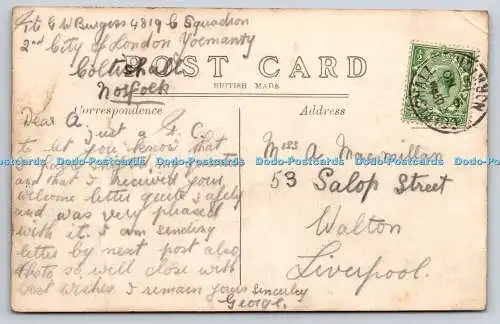 Pte G W Burgess 4819 C Squadron
2nd City of London Yeomanry
Coltishall
Norfolk
POST CARD
BRITISH MADE
Correspondence
Address
Dear A.
just a P. C.
to let you know that
and that I received your
welcome letter quite safely
and was very pleased
with it. I am sending
letter by next post also
Photo so will close with
best wishes. I remain yours sincerley
George.
Mrs A Macmillan
53 Salop Street
Walton
Liverpool.
Postcards-Direct Postcards-Direct Postcards-Direct Postcards-Direct